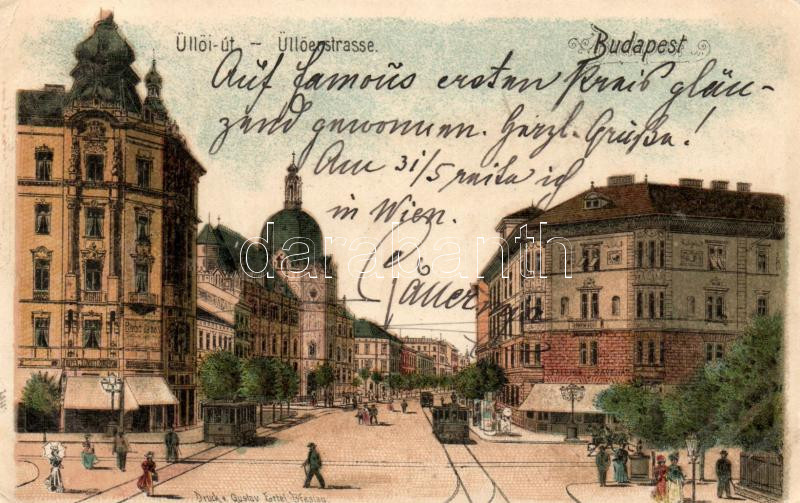 Üllöi-út. – Üllöerstrasse.
Budapest
Auf famoüs ersten Preis glän-
zend gewonnen. Herzl. Grüße!
Am 31/5 reite ich
in Wien.
darabanth
Druck v. Gustav Ertel Breslau